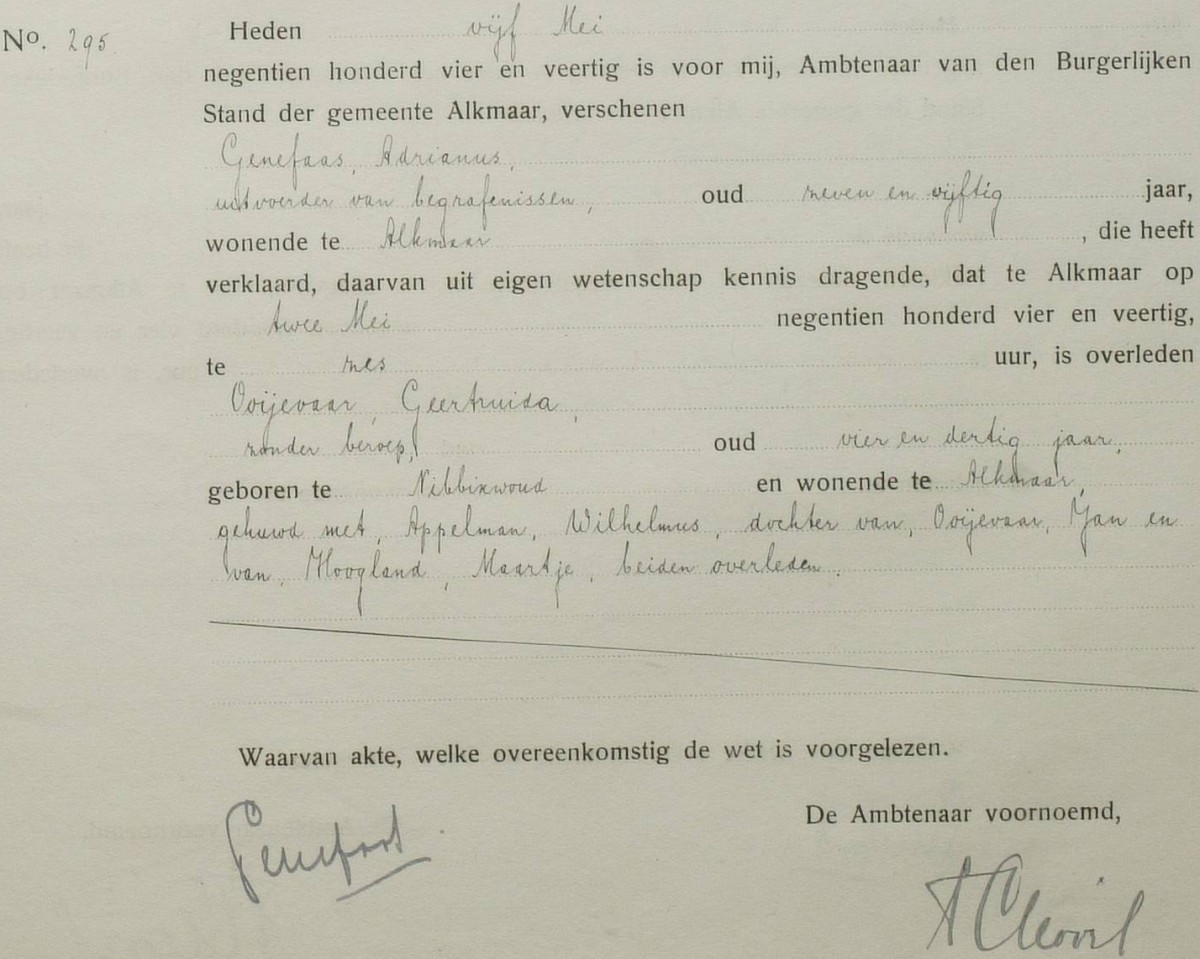 No. 295
Heden vijf Mei
negentien honderd vier en veertig is voor mij, Ambtenaar van den Burgerlijken
Stand der gemeente Alkmaar, verschenen
Genefaas, Adrianus,
uitvoerder van begrafenissen, oud zeven en vijftig jaar,
wonende te Alkmaar, die heeft
verklaard, daarvan uit eigen wetenschap kennis dragende, dat te Alkmaar op
twee Mei negentien honderd vier en veertig,
te zes uur, is overleden
Ooijevaar, Geertruida,
zonder beroep, oud vier en dertig jaar,
geboren te Nibbixwoud en wonende te Alkmaar,
gehuwd met, Appelman, Wilhelmus, dochter van, Ooijevaar, Jan en
van, Hoogland, Maartje, beiden overleden.
Waarvan akte, welke overeenkomstig de wet is voorgelezen.
De Ambtenaar voornoemd,